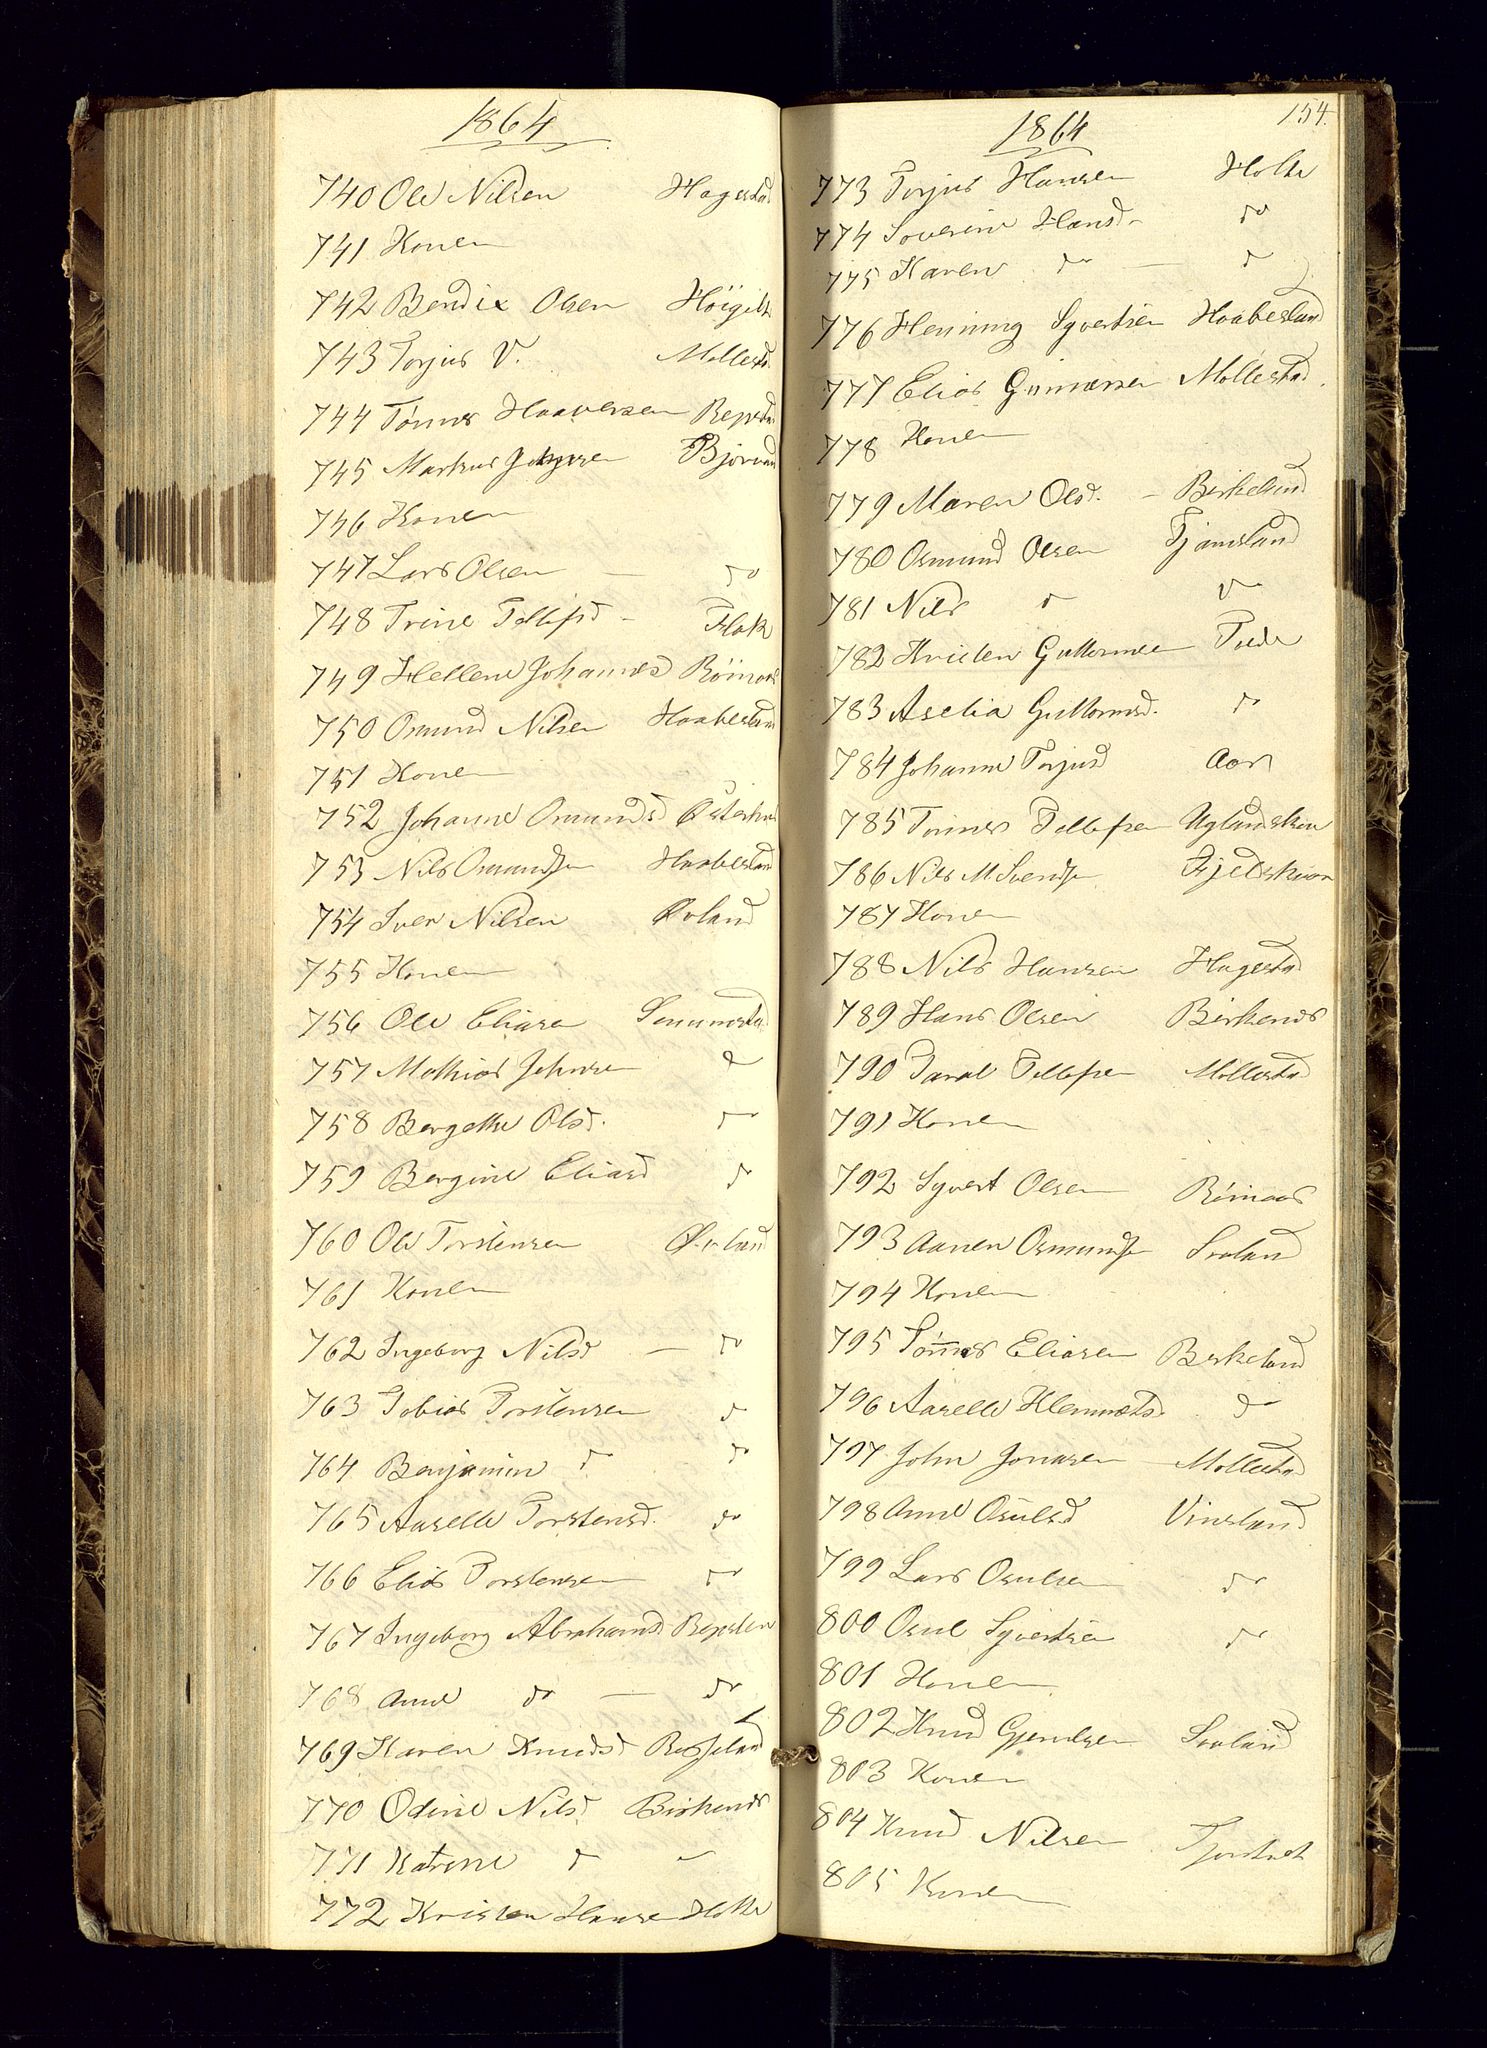 1864
740 Ole Nilsen Hagestad
741 Konen
742 Bendix Olsen
743 Torjus V. Mollestd
744 Tønnes Haaversen Repsta
745 Markus Johnsen
746 Konen
747 Lars Olsen — do
748 Trine Tellefsd - Flak
749 Hellene Johannesd
750 Osmund Nilsen Haabesland
751 Konen
752 Johanne Osmundsd
753 Nils Osmundsen Haabesland
754 Iver Nilsen Øvland
755 Konen
756 Ole Eliasen
757 Mathias Johnsen do
758 Bergethe Olsd. do
759 Bergine Eliasd do
760 Ole Torstensen Øvland
761 Konen
762 Ingeborg Nilsd — do
763 Tobias Torstensen do
764 Benjamin do do
765 Aaselle Torstensd. do
766 Elias Torstensen do
767 Ingeborg Abrahamsd. Repsten
768 Anne do — do
769 Karen Knudsd
770 Odine Nilsd Birkenes
771 Katrine do
772 Kristen Hansen Holte
154.
1864
773 Torjus Hansen Holte
774 Severine Hansd - do
775 Karen do — do
776 Henning Syvertsen Haabesland
777 Elias Gunnersen Mollestad.
778 Konen
779 Maren Olsd. - Birkeland
780 Osmund Olsen Tjamsland
781 Nils do do
782 Kristen Guttormsen Tvede
783 Aselia Guttormsd. do
784 Johanne Torjusd Aas
785 Tønnes Tellefsen Uglandskien
786 Nils M Svends
787 Konen
788 Nils Hansen Hagestad
789 Hans Olsen Birkenes
790 Taral Tellefsen Mollestad
791 Konen
792 Syvert Olsen
793 Aanen Osmundsen Svaland
794 Konen
795 Tønnes Eliasen Berkeland
796 Aaselle Klemmetsd do
797 John Jonasen Mollestad
798 Anne Osulsd Vinsland
799 Lars Osulsen do
800 Osul Syvertsen do
801 Konen
802 Knud Gjerulsen Svaland
803 Konen
804 Knud Nilsen
805 Konen